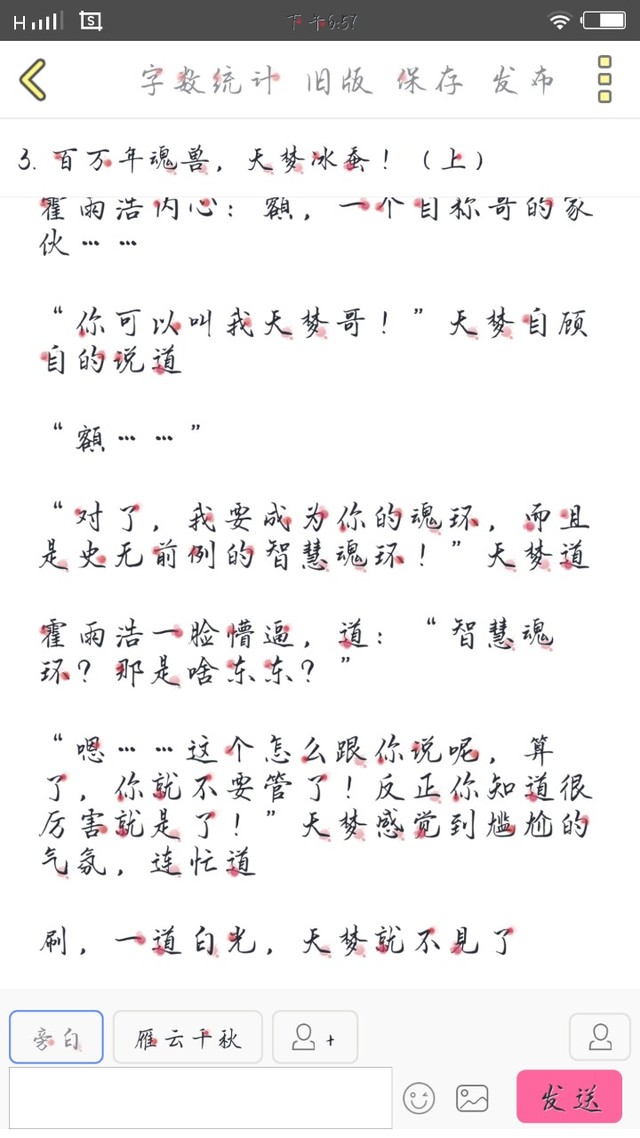 H
下午6:57
字数统计 旧版 保存 发布
3. 百万年魂兽，天梦冰蚕！（上）
霍雨浩内心：額，一个自称哥的家
伙……
“你可以叫我天梦哥！”天梦自顾
自的说道
“額……”
“对了，我要成为你的魂环，而且
是史无前例的智慧魂环！”天梦道
霍雨浩一脸懵逼，道：“智慧魂
环？那是啥东东？”
“嗯……这个怎么跟你说呢，算
了，你就不要管了！反正你知道很
厉害就是了！”天梦感觉到尴尬的
气氛，连忙道
刷，一道白光，天梦就不見了
旁白 雁云千秋 +
发送